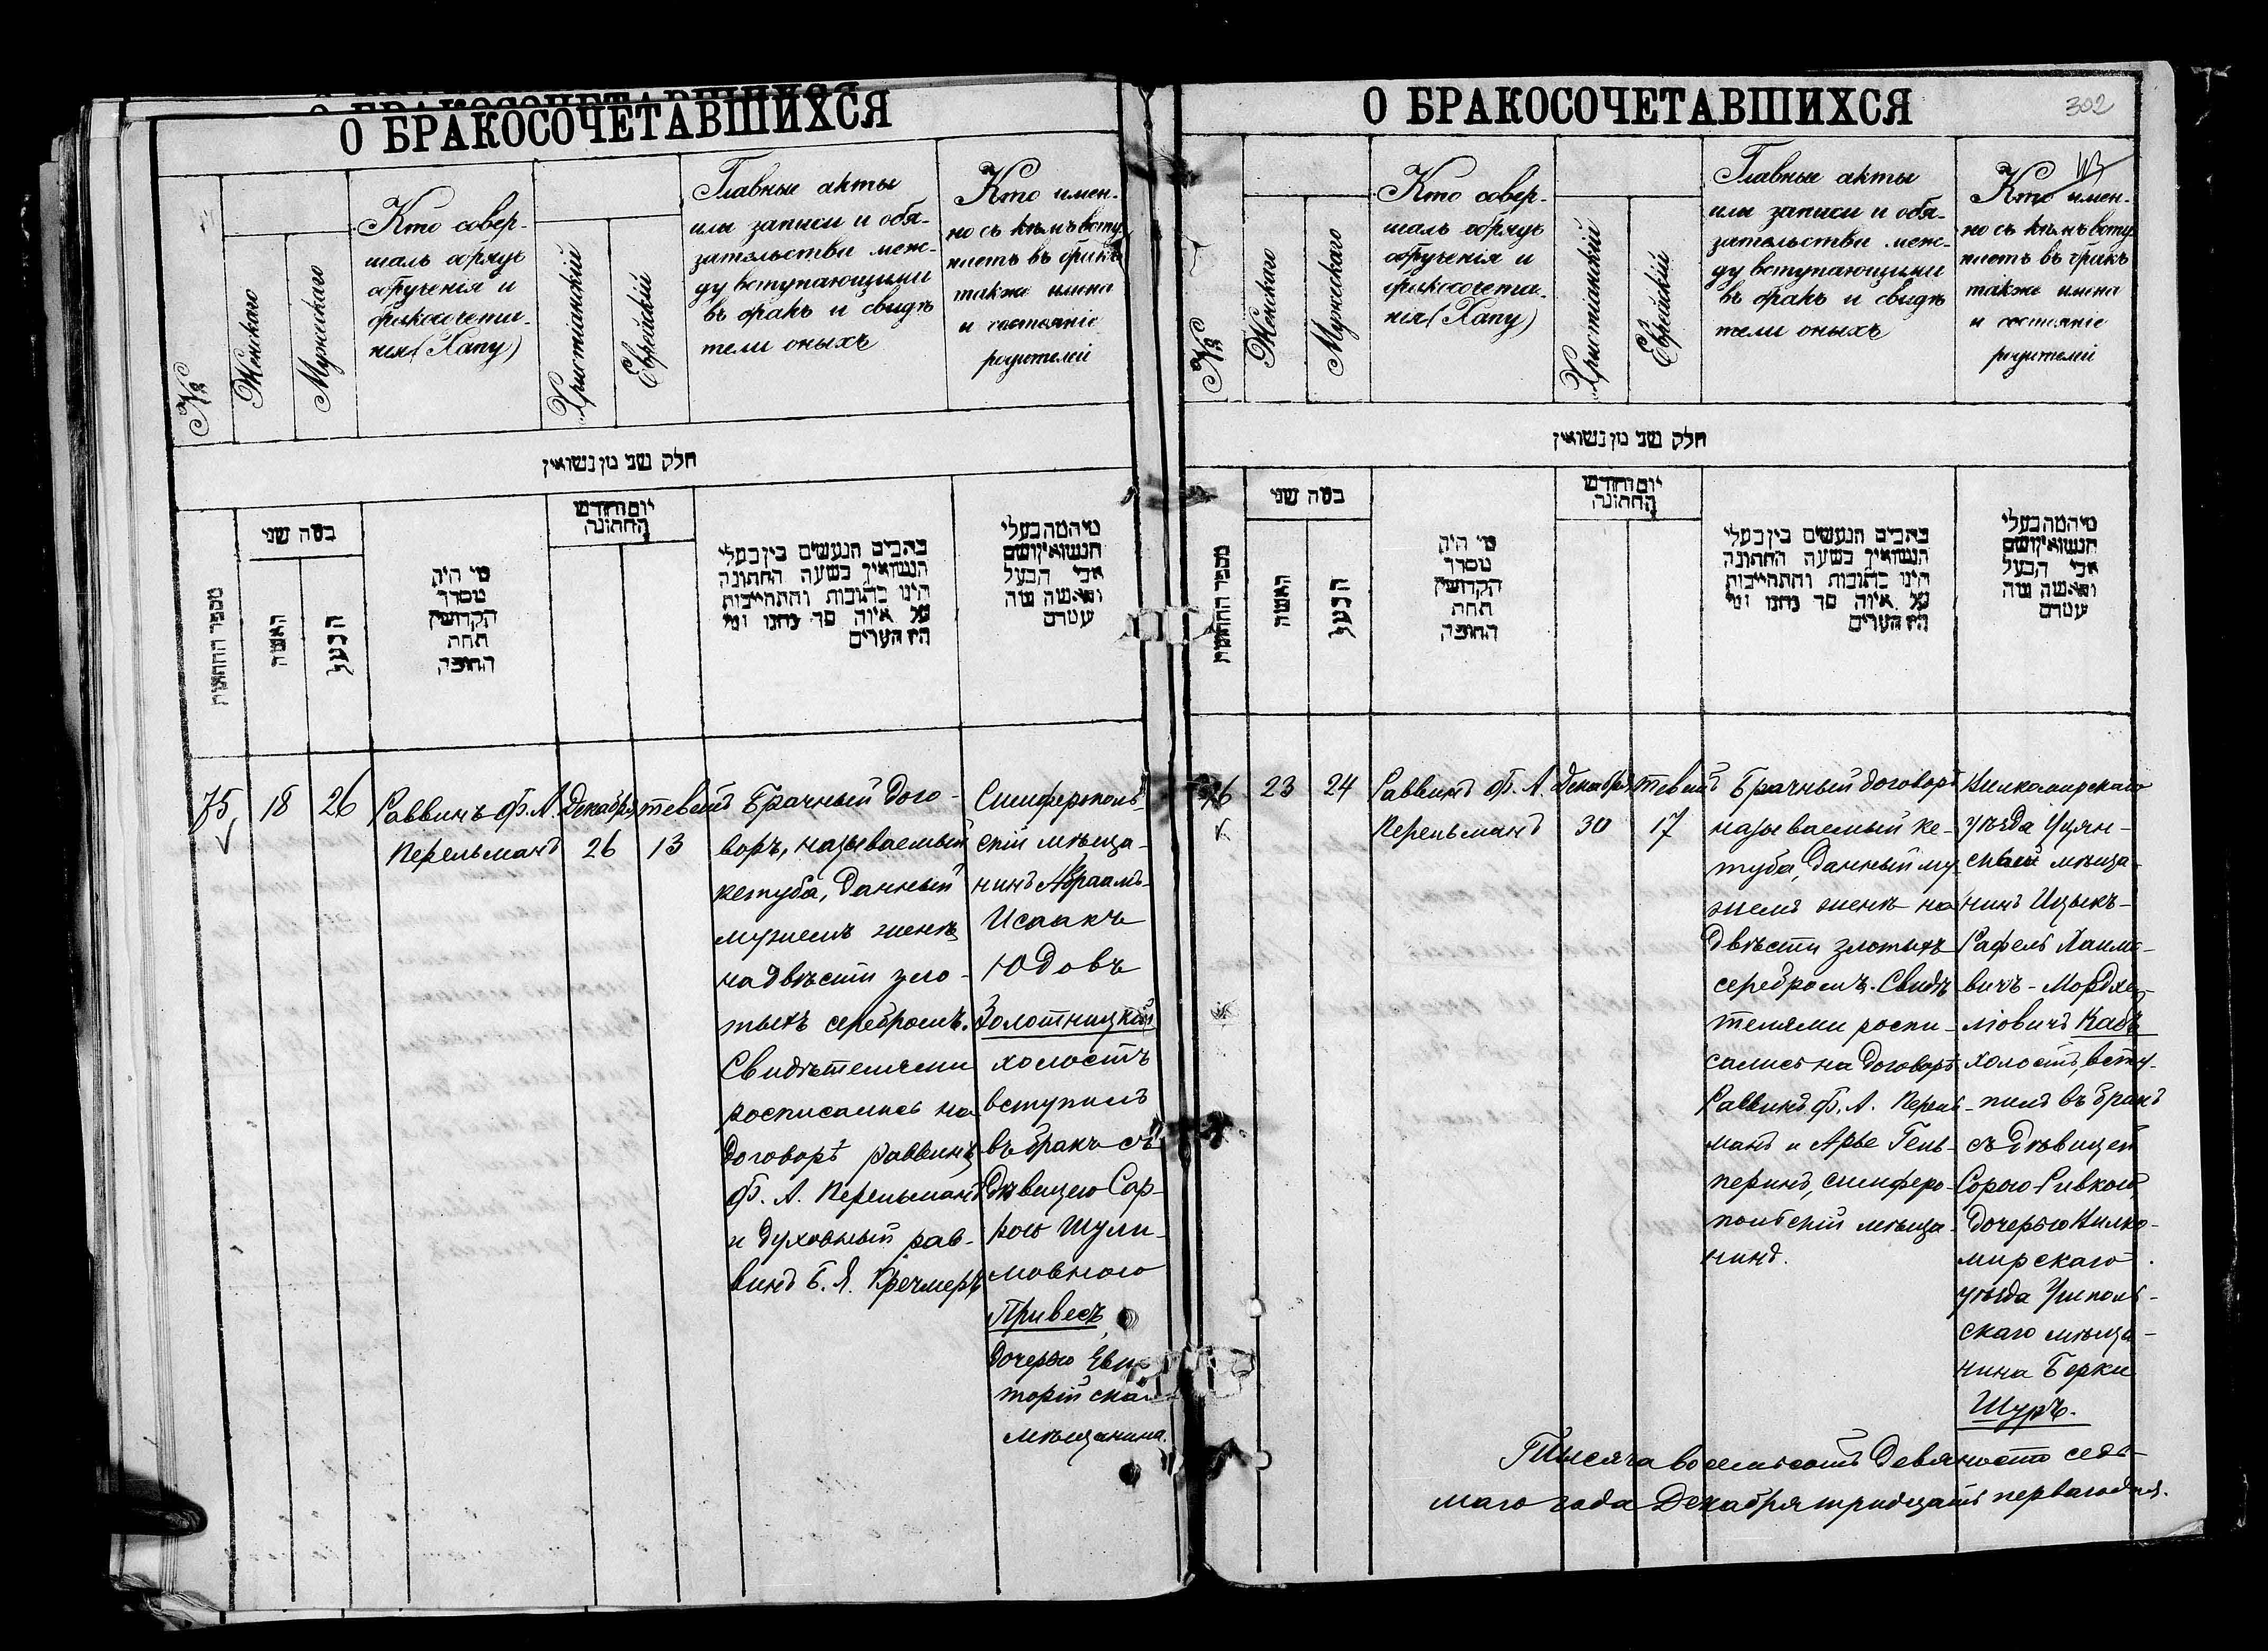 О БРАКОСОЧЕТАВШИХСЯ
№
Женскаго
Мужескаго
Кто совер-
шалъ обрядъ
обрученія и
бракосочета-
нія (Хапу)
Христіанскій
Еврейскій
Главные акты
или записи и обя-
зательства меж-
ду вступающими
въ бракъ и свидѣ
тели оныхъ
Кто имен-
но съ кѣмъ всту
паетъ въ бракъ
также имена
и состояніе
родителей
חלק שני מן נשואין
מספר החתונות
כמה שני
האשה
הבעל
מי היה
מסדר
הקדושין
תחת
החופה
יום וחדש
החתונה
כתבים הנעשים בין בעלי
הנשואין בשעה החתונה
היינו כתובות והתחייבות
על איזה סך נתנו ומי
היו העדים
מי המה בעלי
הנשואין ושם
אבי הבעל
והאשה ומה
עטרם
75
18
26
Раввинъ Ф. А.
Перельманъ
Декабря
26
тевейтъ
13
Брачный дого-
воръ, называемый
кетуба, данный
мужемъ женѣ
на двѣсти зло-
тыхъ серебромъ.
Свидѣтелями
росписались на
договорѣ раввинъ
Ф. А. Перельманъ
и духовный рав-
винъ Б. Я. Кречмеръ
Симферополь-
скій мѣща-
нинъ Авраамъ-
Исаакъ
Юдовъ
Золотницкій
холостъ
вступилъ
въ бракъ съ
дѣвицею Сар-
рою Шули-
мовною
Привесъ,
дочерью Евпа
торійскаго
мѣщанина.
О БРАКОСОЧЕТАВШИХСЯ
302
№
Женскаго
Мужескаго
Кто совер-
шалъ обрядъ
обрученія и
бракосочета-
нія (Хапу)
Христіанскій
Еврейскій
Главные акты
или записи и обя-
зательства меж-
ду вступающими
въ бракъ и свидѣ
тели оныхъ
Кто имен-
но съ кѣмъ всту
паетъ въ бракъ
также имена
и состояніе
родителей
חלק שני מן נשואין
מספר החתונות
כמה שני
האשה
הבעל
מי היה
מסדר
הקדושין
תחת
החופה
יום וחדש
החתונה
כתבים הנעשים בין בעלי
הנשואין בשעה החתונה
היינו כתובות והתחייבות
על איזה סך נתנו ומי
היו העדים
מי המה בעלי
הנשואין ושם
אבי הבעל
והאשה ומה
עטרם
76
23
24
Раввинъ Ф. А.
Перельманъ
Декабря
30
тевейтъ
17
Брачный договоръ
называемый ке-
туба, данный му
жемъ женѣ на
двѣсти злотыхъ
серебромъ. Свидѣ
телями роспи-
сались на договорѣ
Раввинъ Ф. А. Перель-
манъ и Арье Гель-
перинъ, симферо-
польскій мѣща-
нинъ.
Вилкомирскаго
уѣзда Уцян-
скій мѣща-
нинъ Ицыкъ-
Рафель Хаимо-
вичъ-Мордхе-
ліовичъ Кабъ
холостъ, всту-
пилъ въ бракъ
съ дѣвицей
Сорою-Ривкой,
дочерью Вилко-
мирскаго
уѣзда Уціполь-
скаго мѣща-
нина Берки
Шуръ.
Тысяча восемьсотъ девяносто седь-
маго года Декабря тридцать перваго дня.